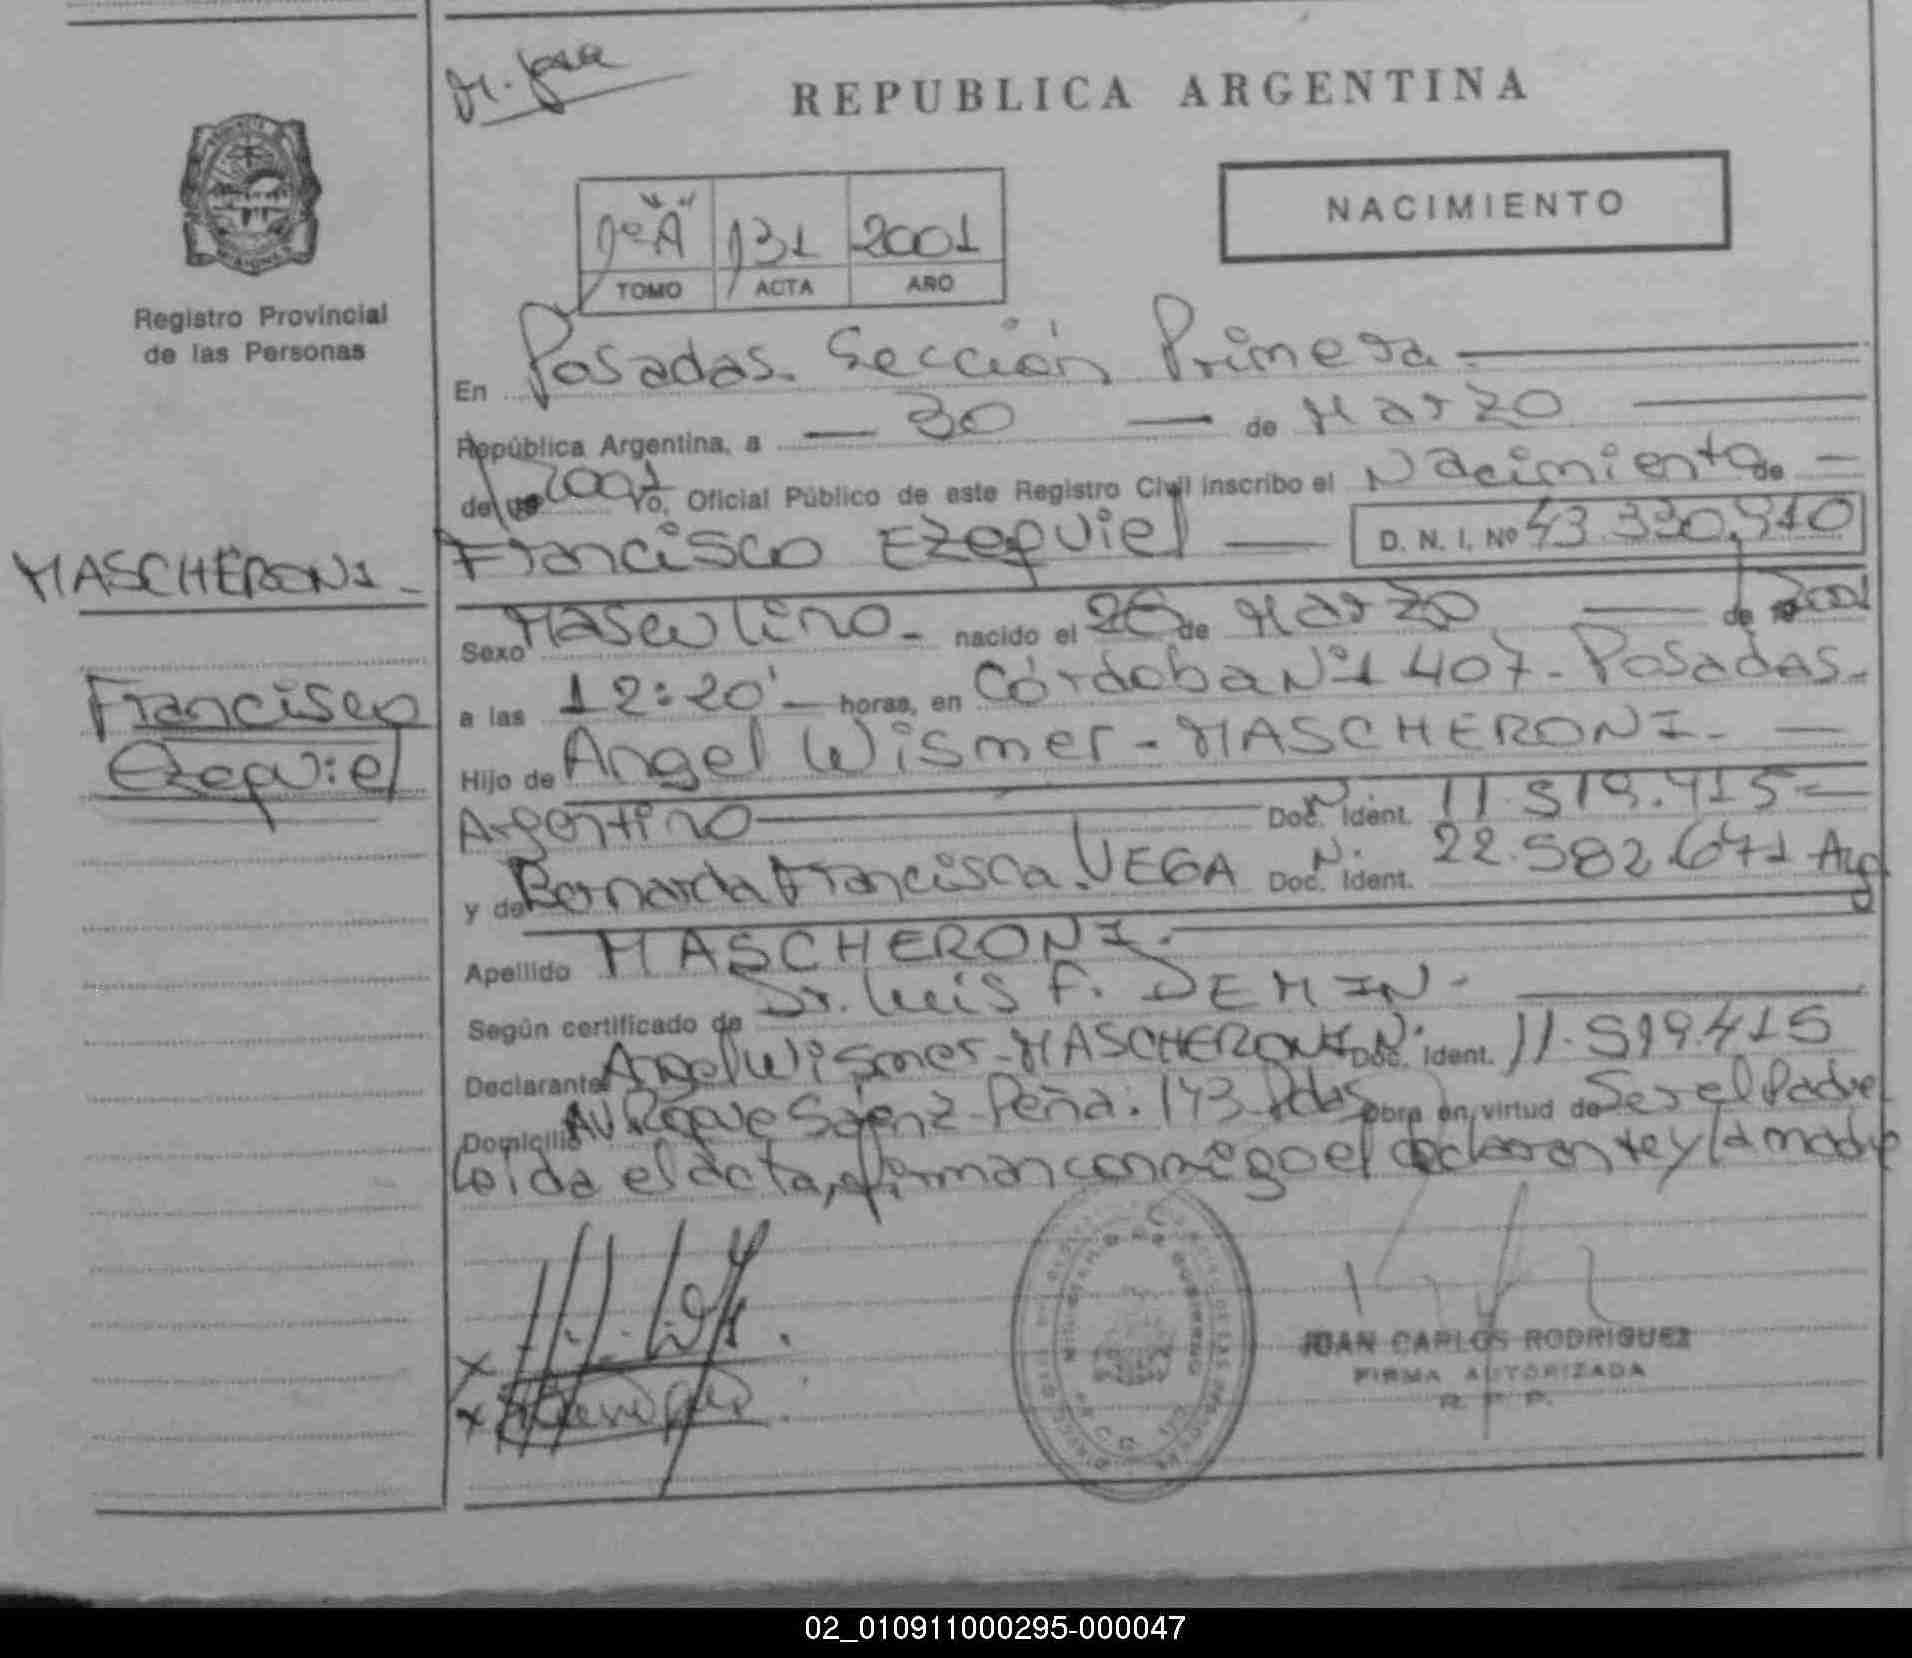 REPUBLICA ARGENTINA
NACIMIENTO
1º "A" 131 2001
TOMO ACTA AÑO
Registro Provincial
de las Personas
En Posadas. Sección Primera.
República Argentina, a 30 de Marzo
de 2001 Yo, Oficial Público de este Registro Civil inscribo el Nacimiento de
Francisco Ezequiel D. N. I. Nº 43.330.910
MASCHERONI
Francisco
Ezequiel
Sexo Masculino. nacido el 26 de Marzo de 2001
a las 12:20' horas, en Córdoba Nº 1407 - Posadas.
Hijo de Angel Wismer - MASCHERONI.
Argentino Doc. N. Ident. 11.519.415
y de Bernarda Francisca VEGA Doc. N. Ident. 22.582.671 Arg
Apellido MASCHERONI.
Según certificado de Dr. Luis F. DEMIN.
Declarante Angel Wismer - MASCHERONI N. Doc. Ident. 11.519.415
Domicilio AV. Roque Sáenz Peña: 143 Pdas Obra en virtud de Ser el Padre
Leída el acta, firman conmigo el declarante y la madre
JUAN CARLOS RODRIGUEZ
FIRMA AUTORIZADA
R. P. P.
02_010911000295-000047